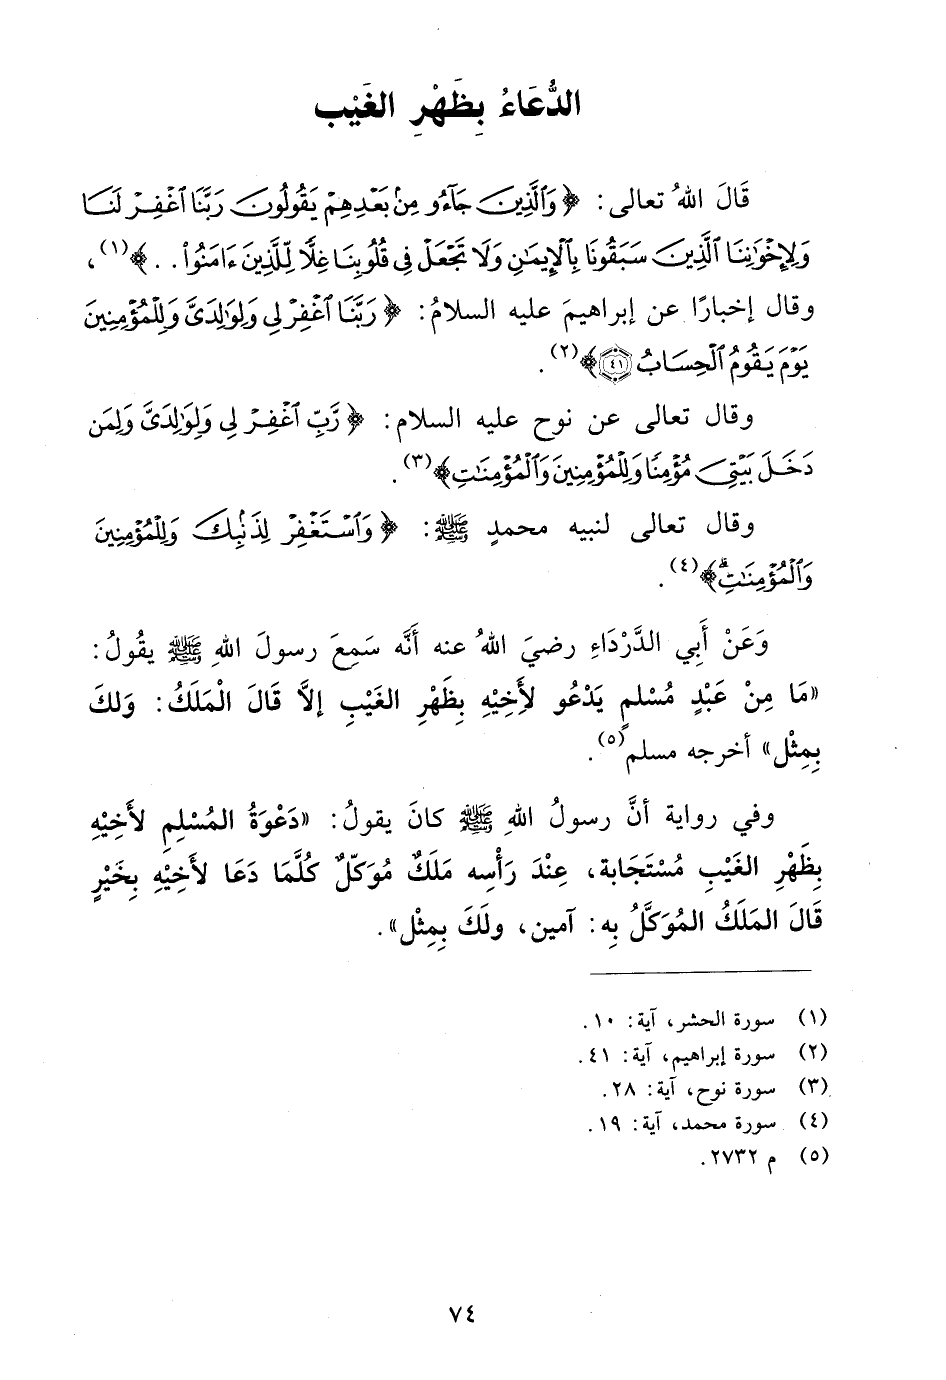 الدُّعَاءُ بِظَهْرِ الغَيْب
قَالَ اللهُ تعالى: ﴿وَٱلَّذِينَ جَآءُو مِنۢ بَعْدِهِمْ يَقُولُونَ رَبَّنَا ٱغْفِرْ لَنَا
وَلِإِخْوَٰنِنَا ٱلَّذِينَ سَبَقُونَا بِٱلْإِيمَٰنِ وَلَا تَجْعَلْ فِى قُلُوبِنَا غِلًّا لِّلَّذِينَ ءَامَنُوا۟ . . ﴾(١)،
وقال إخبارًا عن إبراهيمَ عليه السلامُ: ﴿رَبَّنَا ٱغْفِرْ لِى وَلِوَٰلِدَىَّ وَلِلْمُؤْمِنِينَ
يَوْمَ يَقُومُ ٱلْحِسَابُ ٤١﴾(٢).
وقال تعالى عن نوح عليه السلام: ﴿رَّبِّ ٱغْفِرْ لِى وَلِوَٰلِدَىَّ وَلِمَن
دَخَلَ بَيْتِىَ مُؤْمِنًا وَلِلْمُؤْمِنِينَ وَٱلْمُؤْمِنَٰتِ﴾(٣).
وقال تعالى لنبيه محمدٍ ﷺ: ﴿وَٱسْتَغْفِرْ لِذَنۢبِكَ وَلِلْمُؤْمِنِينَ
وَٱلْمُؤْمِنَٰتِۗ﴾(٤).
وَعَنْ أَبِي الدَّرْدَاءِ رضيَ اللهُ عنه أَنَّه سَمِعَ رسولَ اللهِ ﷺ يقُولُ:
«مَا مِنْ عَبْدٍ مُسْلمٍ يَدْعُو لأَخِيْهِ بِظَهْرِ الغَيْبِ إلاَّ قَالَ الْمَلَكُ: وَلكَ
بِمِثْل» أخرجه مسلم(٥).
وفي رواية أنَّ رسولُ اللهِ ﷺ كانَ يقولُ: «دَعْوَةُ المُسْلِمِ لأَخِيْهِ
بِظَهْرِ الغَيْبِ مُسْتَجَابة، عِنْدَ رَأْسِه مَلَكٌ مُوَكّلٌ كُلَّمَا دَعَا لأَخِيْهِ بِخَيْرٍ
قَالَ المَلَكُ المُوَكَّلُ بِه: آمين، ولَكَ بِمِثْل».
(١) سورة الحشر، آية: ١٠.
(٢) سورة إبراهيم، آية: ٤١.
(٣) سورة نوح، آية: ٢٨.
(٤) سورة محمد، آية: ١٩.
(٥) م ٢٧٣٢.
٧٤